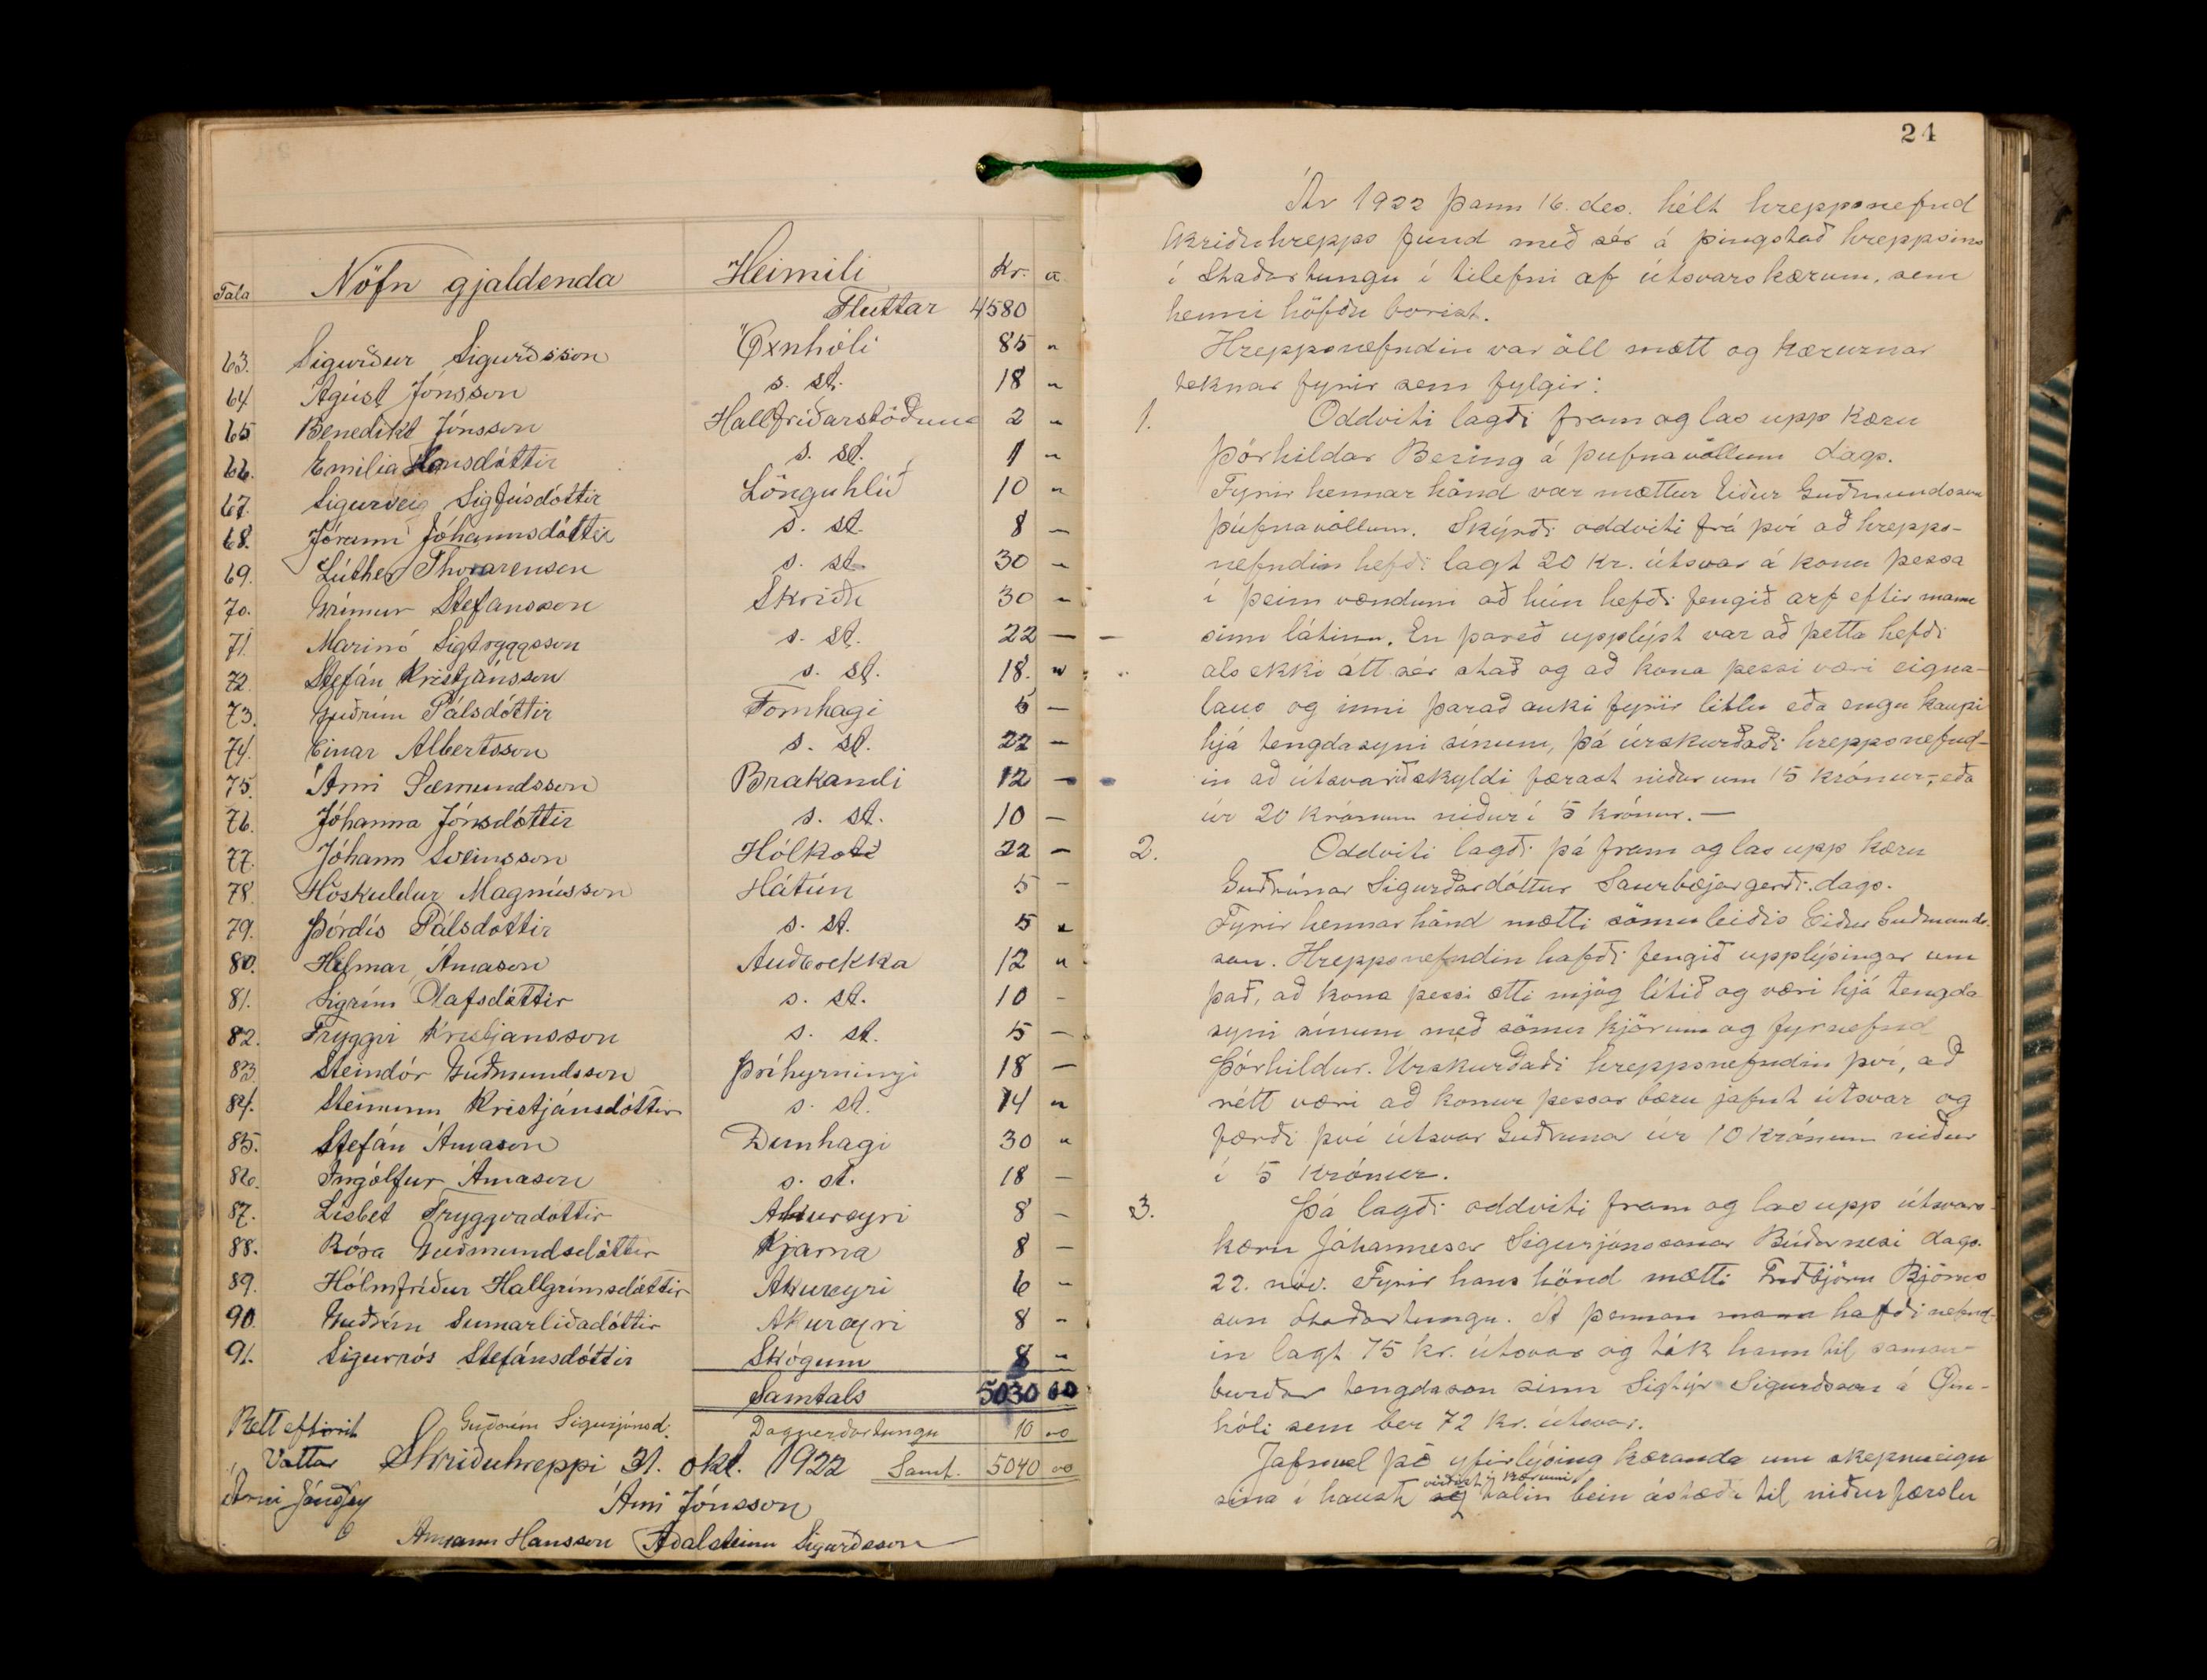 Tala Nöfn gjaldenda Heimili Kr. a.
Fluttar 4580
63. Sigurður Sigurðsson Öxnhóli 85 "
64 Ágúst Jónsson s. st. 18 "
65 Benedikt Jónsson Hallfríðarstöðum 2 "
66. Emilia dóttir s. st. 1 "
67. Sigurveig Sigfúsdóttir Lönguhlíð 10 "
68. Jórunn Jóhannsdóttir s. st. 8 –
69. Lúther Thorarensen s. st. 30 –
70. Grímur Stefánsson Skriðu 30 –
71. Marinó Sigtryggsson s. st. 22 –
72. Stefán Kristjánsson s. st. 18. "
73. Guðrún Pálsdóttir Fornhagi 5 –
74. Einar Albertsson s. st. 22 –
75. Árni Sæmundsson Brakandi 12 –
76. Jóhanna Jónsdóttir s. st. 10 –
77. Jóhann Sveinsson Hólkoti 22 –
78. Höskuldur Magnússon Hátún 5 –
79. Þórdís Pálsdóttir s. st. 5 "
80. Hilmar Árnason Auðbrekka 12 "
81. Sigrún Olafsdóttir s. st. 10 –
82. Tryggvi Kristjansson s. st. 5 –
83. Steindór Guðmundsson Þríhyrningi 18 –
84. Steinunn Kristjánsdóttir s. st. 14 "
85. Stefán Árnason Dunhagi 30 "
86. Ingólfur Árnason s. st. 18 –
87. Lísbet Tryggvadóttir Akureyri 8 –
88. Rósa Guðmundsdóttir Kjarna 8 –
89. Hólmfríður Hallgrímsdóttir Akureyri 6 –
90. Guðrún Sumarliðadóttir Akureyri 8 –
91. Sigurrós Stefánsdóttir Skógum 8 "
Samtals 5030 00
Rétt eftirrit Guðrún Sigurjónsd. Dagverðartungu 10 00
Vottar Skriðuhreppi 31. okt. 1922 Samt. 5040 00
Árni Jónsson
Ármann Hansson Aðalsteinn Sigurðsson
24
Ár 1922 þann 16. des. hélt hreppsnefnd
Skriðuhrepps fund með sér á þingstað hreppsins
í Staðartungu í tilefni af útsvarskærum, sem
henni höfðu borist.
Hreppsnefndin var öll mætt og kærurnar
teknar fyrir sem fylgir:
1. Oddviti lagði fram og las upp kæru
Þórhildar Bering á Þufnavöllum dags.
Fyrir hennar hönd var mættur Eiður Guðmundsson
Þúfnavöllum. Skýrði oddviti frá því að hrepps-
nefndin hefði lagt 20 kr. útsvar á konu þessa
í þeim vændum að hún hefði fengið arf eftir mann
sinn látinn. En þareð upplýst var að þetta hefði
als ekki átt sér stað og að kona þessi væri eigna-
laus og inni þarað auki fyrir litlu eða engu kaupi
hjá tengdasyni sínum, þá úrskurðaði hreppsnefnd-
in að útsvarið skyldi færast niður um 15 krónur, eða
úr 20 krónum niður í 5 krónur. –
2. Oddviti lagði þá fram og las upp kæru
Guðrúnar Sigurðardóttur Saurbæjargerði. dags.
Fyrir hennar hánd mætti sömuleiðis Eiður Guðmunds-
son. Hreppsnefndin hafði fengið upplýsingar um
það, að kona þessi ætti mjög lítið og væri hjá tengda
syni sínum með sömu kjörum og fyrnefnd
Þórhildur. Úrskurðaði hreppsnefndin því, að
rétt væri að konur þessar bæru jafnt útsvar og
færði því útsvar Guðrunar úr 10 krónum niður
í 5 krónur.
3. Þá lagði oddviti fram og las upp útsvars-
kæru Jóhannesar Sigurjónssonar Búðarnesi dags.
22. nóv. Fyrir hans hönd mætti Friðbjörn Björns
son Staðartungu. Á þennan mann hafði nefnd-
in lagt 75 kr. útsvar og tók hann til saman-
burðar tengdason sinn Sigtýr Sigurðsson á Öxn-
hóli sem ber 72 kr. útsvar.
Jafnvel þó yfirlýsing kæranda um skepnueign
sína í haust virðist í kærunni talin bein ástæða til niðurfærslu